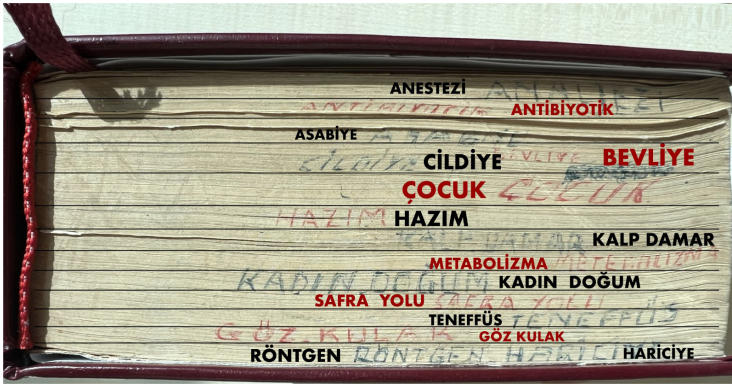 ANESTEZİ
ANTİBİYOTİK ANTİBİYOTİK
ASABİYE ASABİYE
CİLDİYE CİLDİYE BEVLİYE BEVLİYE
ÇOCUK ÇOCUK
HAZIM HAZIM
KALP DAMAR KALP DAMAR
METABOLİZMA
KADIN DOĞUM KADIN DOĞUM
SAFRA YOLU SAFRA YOLU
TENEFFÜS TENEFFÜS
GÖZ KULAK GÖZ KULAK
RÖNTGEN RÖNTGEN HARİCİYE HARİCİYE